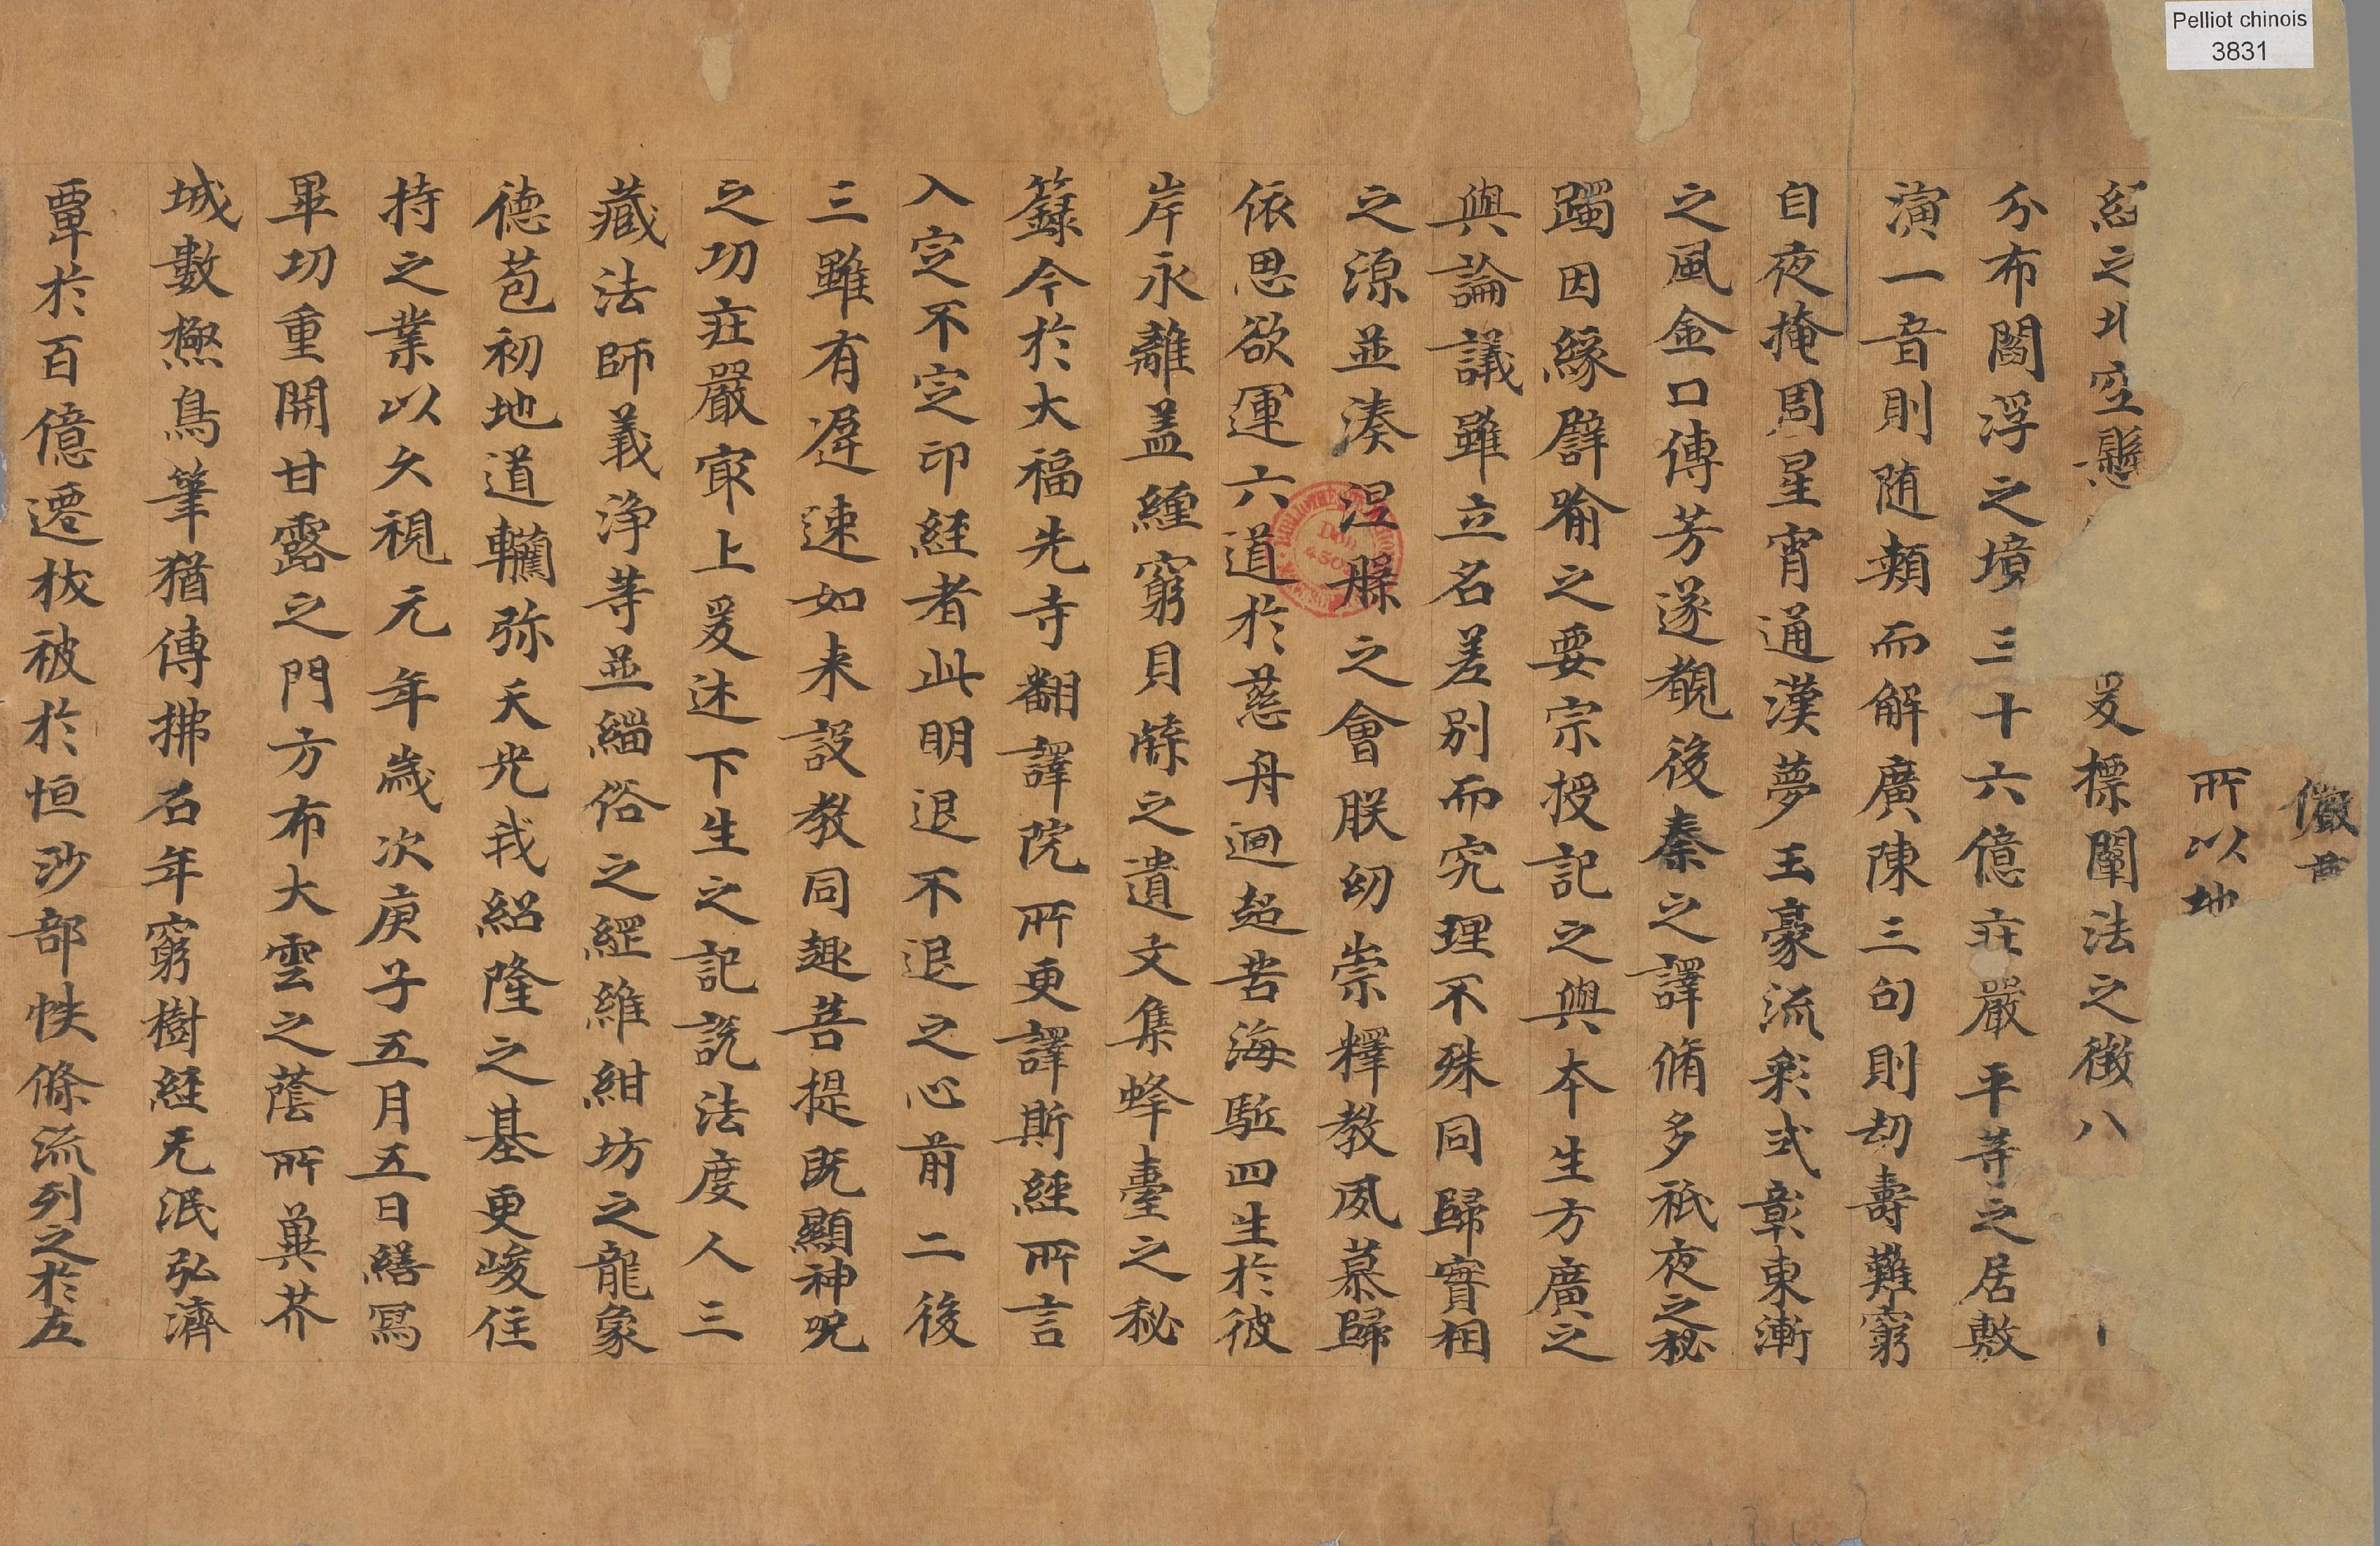 Pelliot chinois
3831
儼
所以地
經之北空懸 爰標闡法之徵八
分布閻浮之境三十六億莊嚴平等之居敷
演一音則随類而解廣陳三句則劫壽難窮
自夜掩周星宵通漢夢玉豪流彩式彰東漸
之風金口傳芳遂覩後秦之譯脩多祇夜之秘
躅因緣譬喻之要宗授記之與本生方廣之
與論議雖立名差別而究理不殊同歸實相
之源並湊涅槃之會朕幼崇釋教夙慕歸
依思欲運六道於慈舟迥超苦海駈四生於彼
岸永離盖纏窮貝牒之遺文集蜂臺之秘
籙今於大福先寺翻譯院所更譯斯經所言
入定不定印経者此明退不退之心前二後
三雖有遅速如来設教同趣菩提既顯神呪
之功莊嚴寂上爰述下生之記説法度人三
藏法師義浄等並緇俗之綱維紺坊之龍象
德苞初地道轥弥天光我紹隆之基更峻住
持之業以久視元年歳次庚子五月五日繕寫
畢功重開甘露之門方布大雲之蔭所兾芥
城數極鳥筆猶傳拂石年窮樹経无泯弘濟
覃於百億遷拔被於恒沙部帙條流列之於左